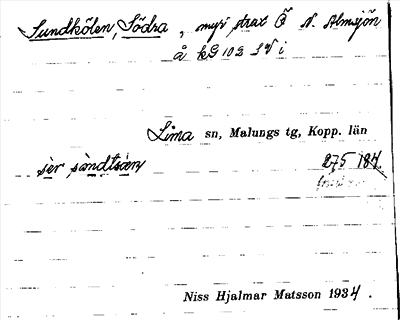 Sundkölen, Södra, myr strax Ö N. Almsjön
å kb 102 SV i
Lima sn, Malungs tg, Kopp. län
sèr sàndtsæn 275 184
Niss Hjalmar Matsson 1934.